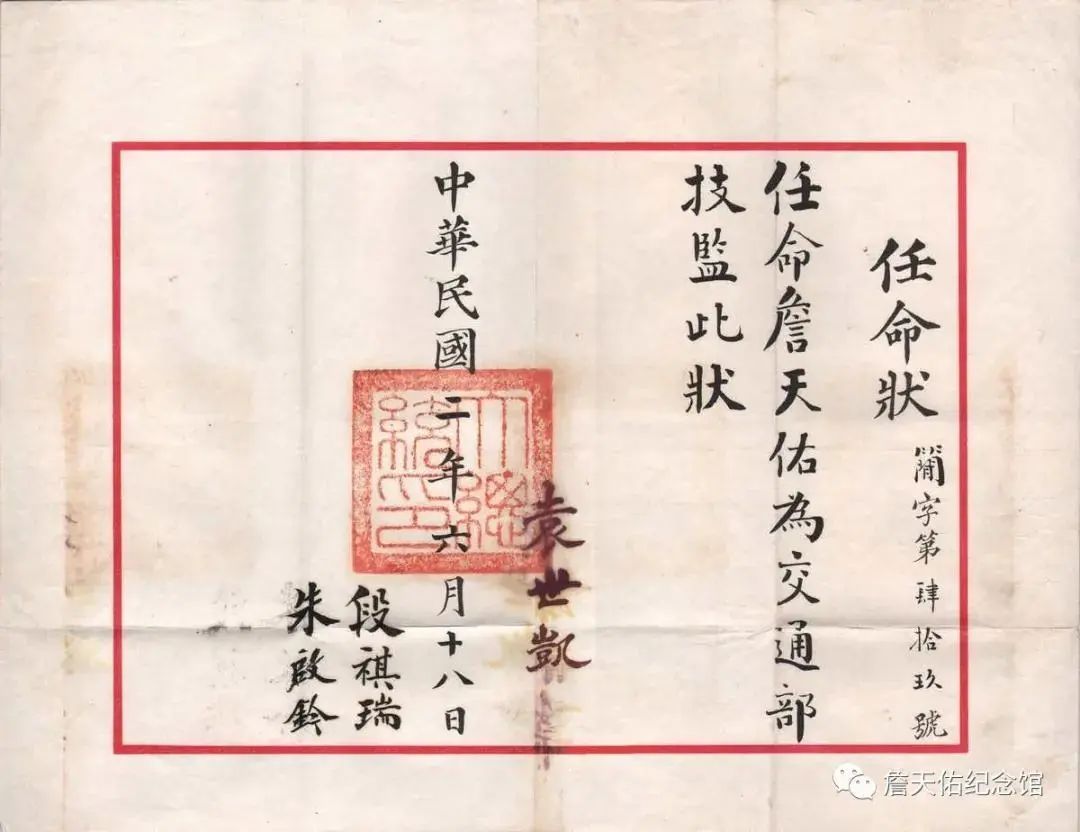 任命狀
簡字第肆拾玖號
任命詹天佑為交通部
技監此狀
袁世凱
中華民國二年六月十八日
大總統印
段祺瑞
朱啟鈐
詹天佑纪念馆